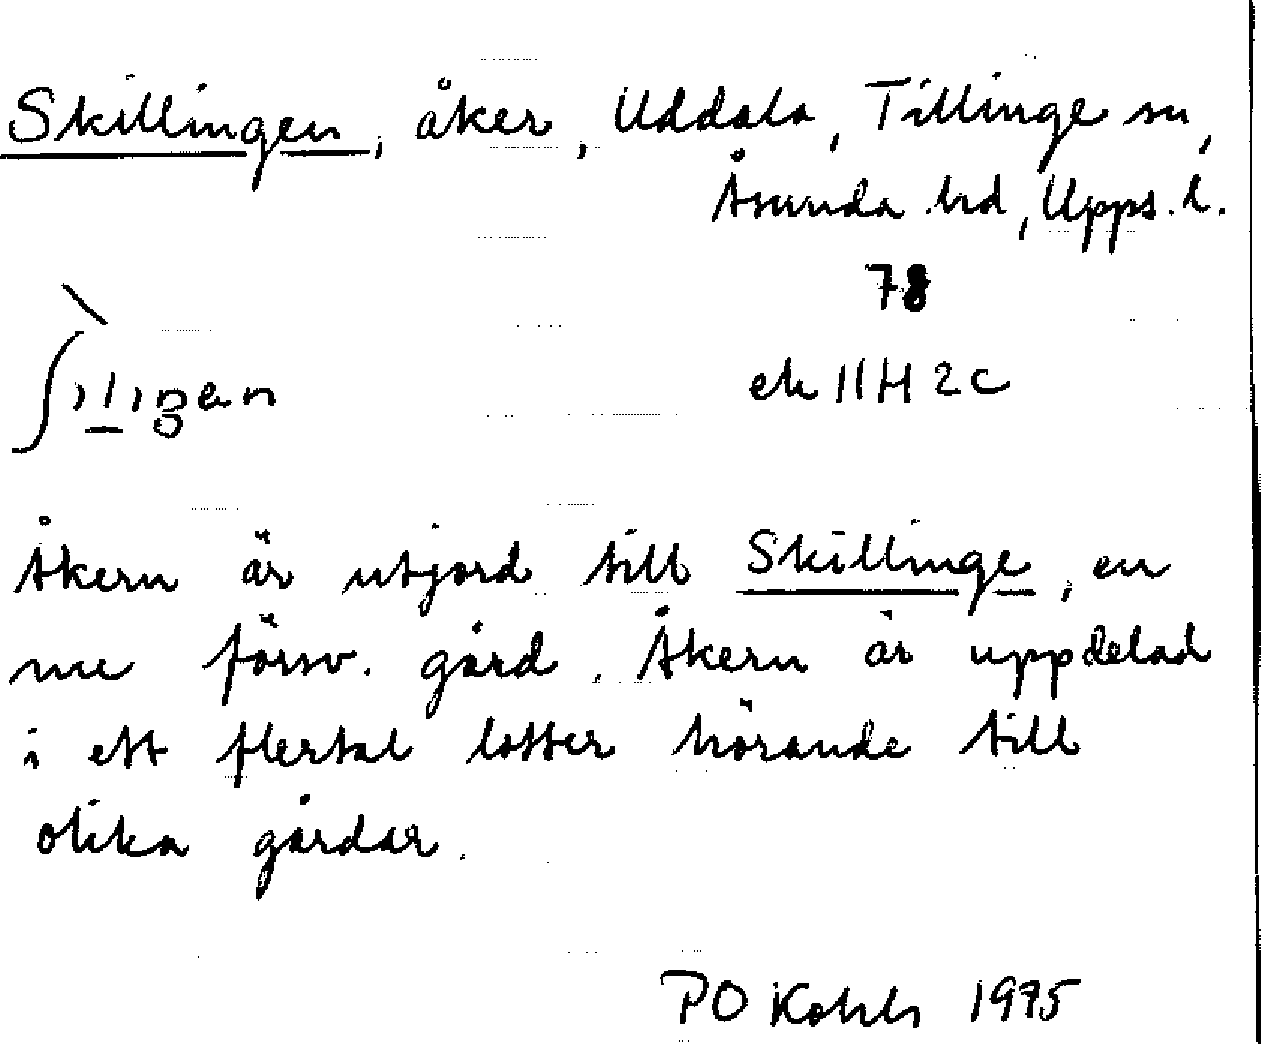 Skillingen, åker, Uddala, Tillinge sn,
Åsunda hd, Upps. l.
78
ek 11H 2c
Åkern är utjord till Skillinge, en
nu försv. gård. Åkern är uppdelad
i ett flertal lotter hörande till
olika gårdar.
PO 1975